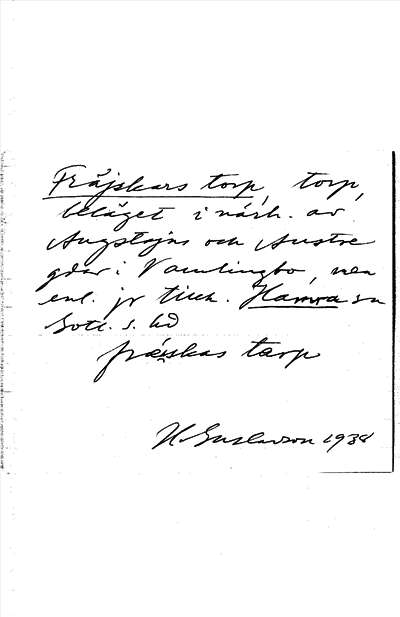 Fråjskars torp, torp,
beläget i närh. av
Augstajns och Austre
gdar i Vamlingbo, men
enl. jr tillh. Hamra sn
Gotl. s. hd
fræiskas tarp
H. Gustavson 1938